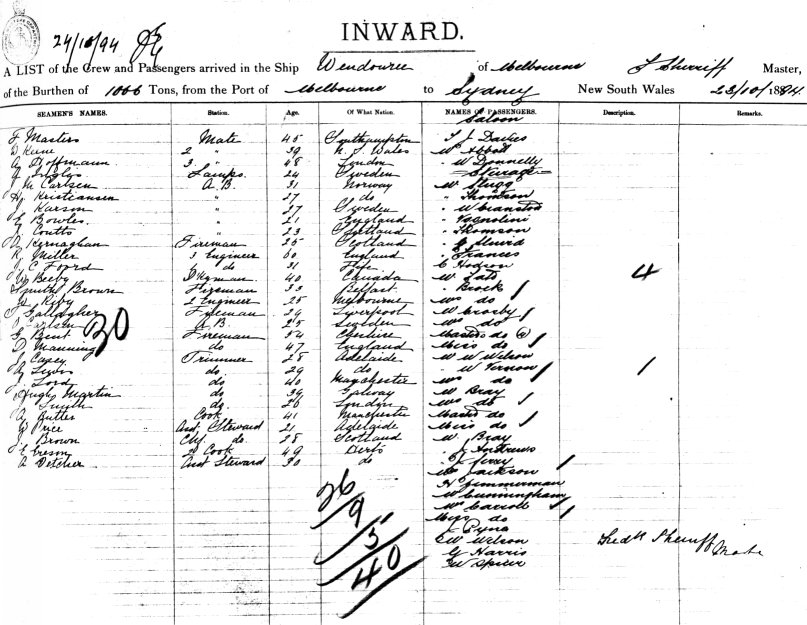 24/10/94
INWARD.
A LIST of the Crew and Passengers arrived in the Ship Wendouree of Melbourne Sherriff Master,
of the Burthen of 1066 Tons, from the Port of Melbourne to Sydney New South Wales 23/10/1894.
SEAMEN'S NAMES. Station. Age. Of What Nation. NAMES OF PASSENGERS. Description. Remarks.
Saloon
F Masters Mate 45 Southampton J Davies
2 " 39 N. S. Wales Mr Abbott
A Hoffmann 3 " 48 London " W Donnelly
Lamps 24 Sweden Steerage
Carlsen A. B. 31 Norway Mr
H Kristiansen " 27 do " Thomson
Karson " 27 Sweden " W Cranston
Bowles " 21 England
Coutts " 23 Shetland " Thomson
Kernaghan Fireman 25 Scotland
R Miller 3 Engineer 60 England " Francis
C do 31 Fife C Hodson
Beeby 40 Canada 4
Smith Brown Fireman 33 Belfast " Brock
Kirby 2 Engineer 25 Melbourne Mrs do
Gallagher Fireman 29 Liverpool W Crosby
Carlsen A. B. 25 Sweden Mrs do
G Bent Fireman 54 Cheshire Master do
D Manning do 47 England Miss do
J Casey Trimmer 28 Adelaide Mr W Wilson
Lewis do 29 do " W Vernon 1
J Lord do 40 Manchester Mrs do
Hugh Martin do 39 Galway Mr Bray
Smith do 26 London Mrs do
A Butler Cook 41 Manchester Master do
Price Asst Steward 21 Adelaide Miss do
J Brown Chf do 28 Scotland Mr Bray
2d Cook 49 Derby " Andrews
A Vetcher Asst Steward 30 do
30
Mr Jackson
H Zimmerman
W Cunningham
Mr Carroll
Miss do
26
9
5
40
W Wilson Fredk Sherriff Mate
G Harris
W Spicer